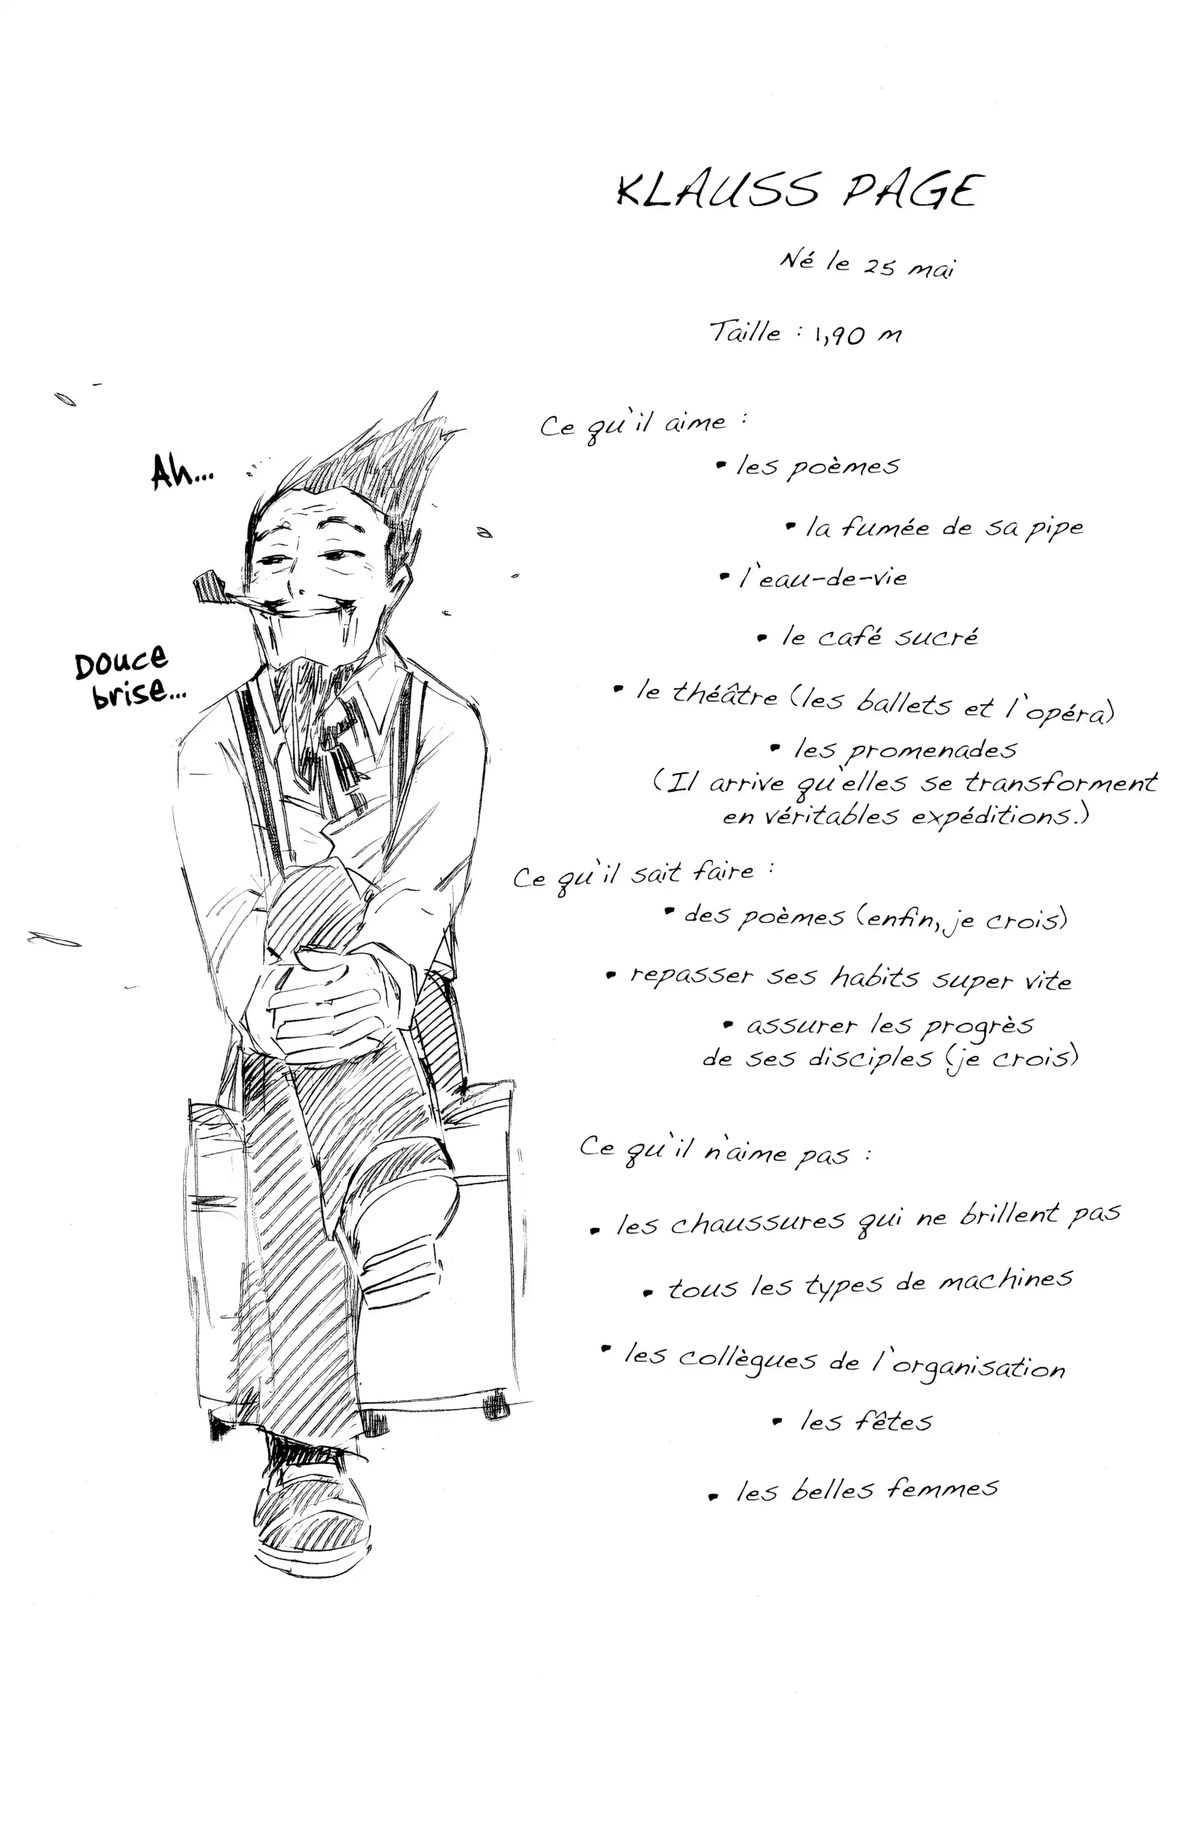 KLAUSS PAGE
Né le 25 mai
Taille : 1,90 m
Ce qu'il aime :
• les poèmes
• la fumée de sa pipe
• l'eau-de-vie
• le café sucré
• le théâtre (les ballets et l'opéra)
• les promenades
(Il arrive qu'elles se transforment
en véritables expéditions.)
Ce qu'il sait faire :
• des poèmes (enfin, je crois)
• repasser ses habits super vite
• assurer les progrès
de ses disciples (je crois)
Ce qu'il n'aime pas :
• les chaussures qui ne brillent pas
• tous les types de machines
• les collègues de l'organisation
• les fêtes
• les belles femmes
Ah...
Douce
brise...